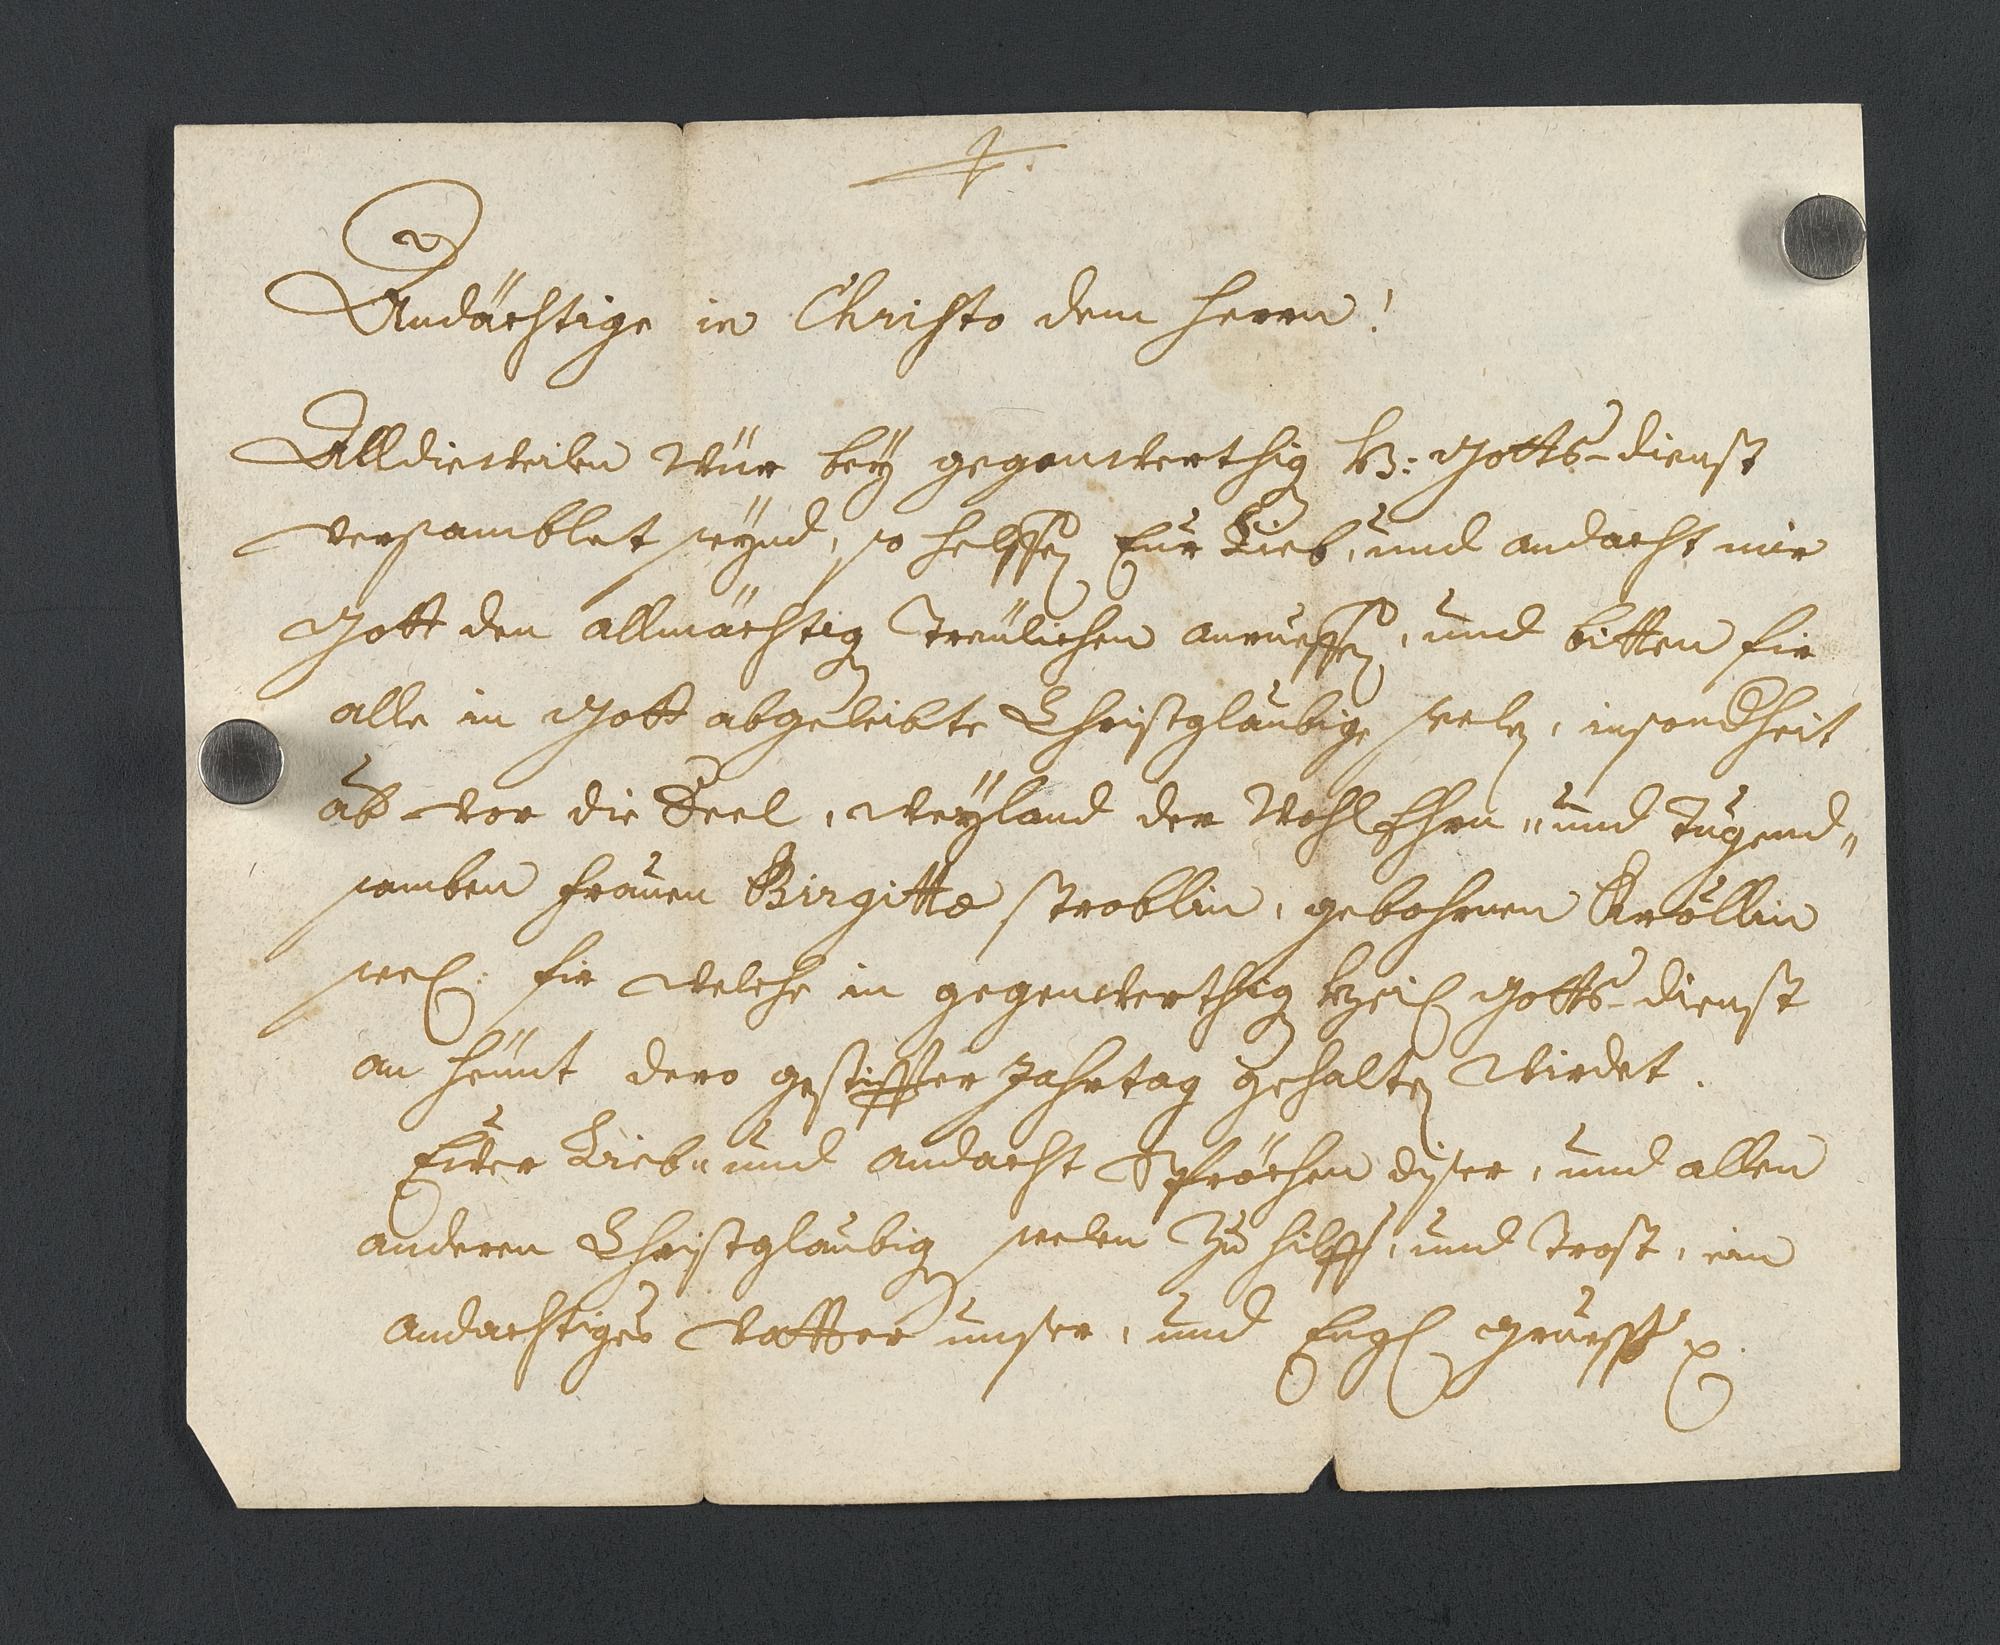 Andächtige in Christo dem herrn!
Alldieweilen Wür beÿ gegenwerthig H: Gotts-dienst
versamblet seÿnd, so helffen Eur Lieb, und andacht mir
Gott den allmächtig Treülichen anrueffen, und bitten fir
alle in Gott abgeleibte Christglaubige seelen, insonderheit
ab vor die Seel, weÿland der Wohl Ehrn „ und Tugend„
samben frauen Birgitta Stroblin, gebohrnen Kröllin
seel: fir welche in gegenwerthig heil Gotts-dienst
an heünt dero gestiffter Jahrtag gehalten wirdet.
Euer Lieb „ und andacht Spröchen diser, und allen
anderen Christglaubig seelen Zu hilff, und trost, ein
andachtiges Vatter unser, und Engl gruess